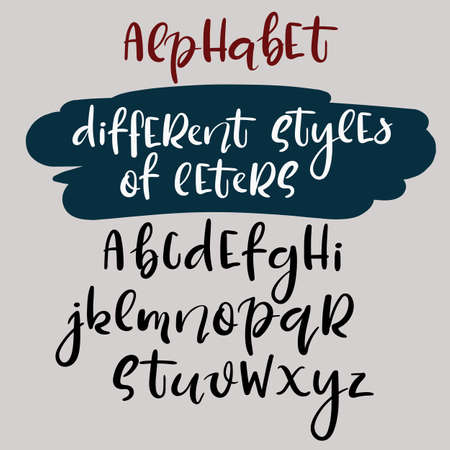 AlpHabEt
diffERent StylEs
of lEteRS
AbCdEfgHi
jklmnopqR
StuvWXyz